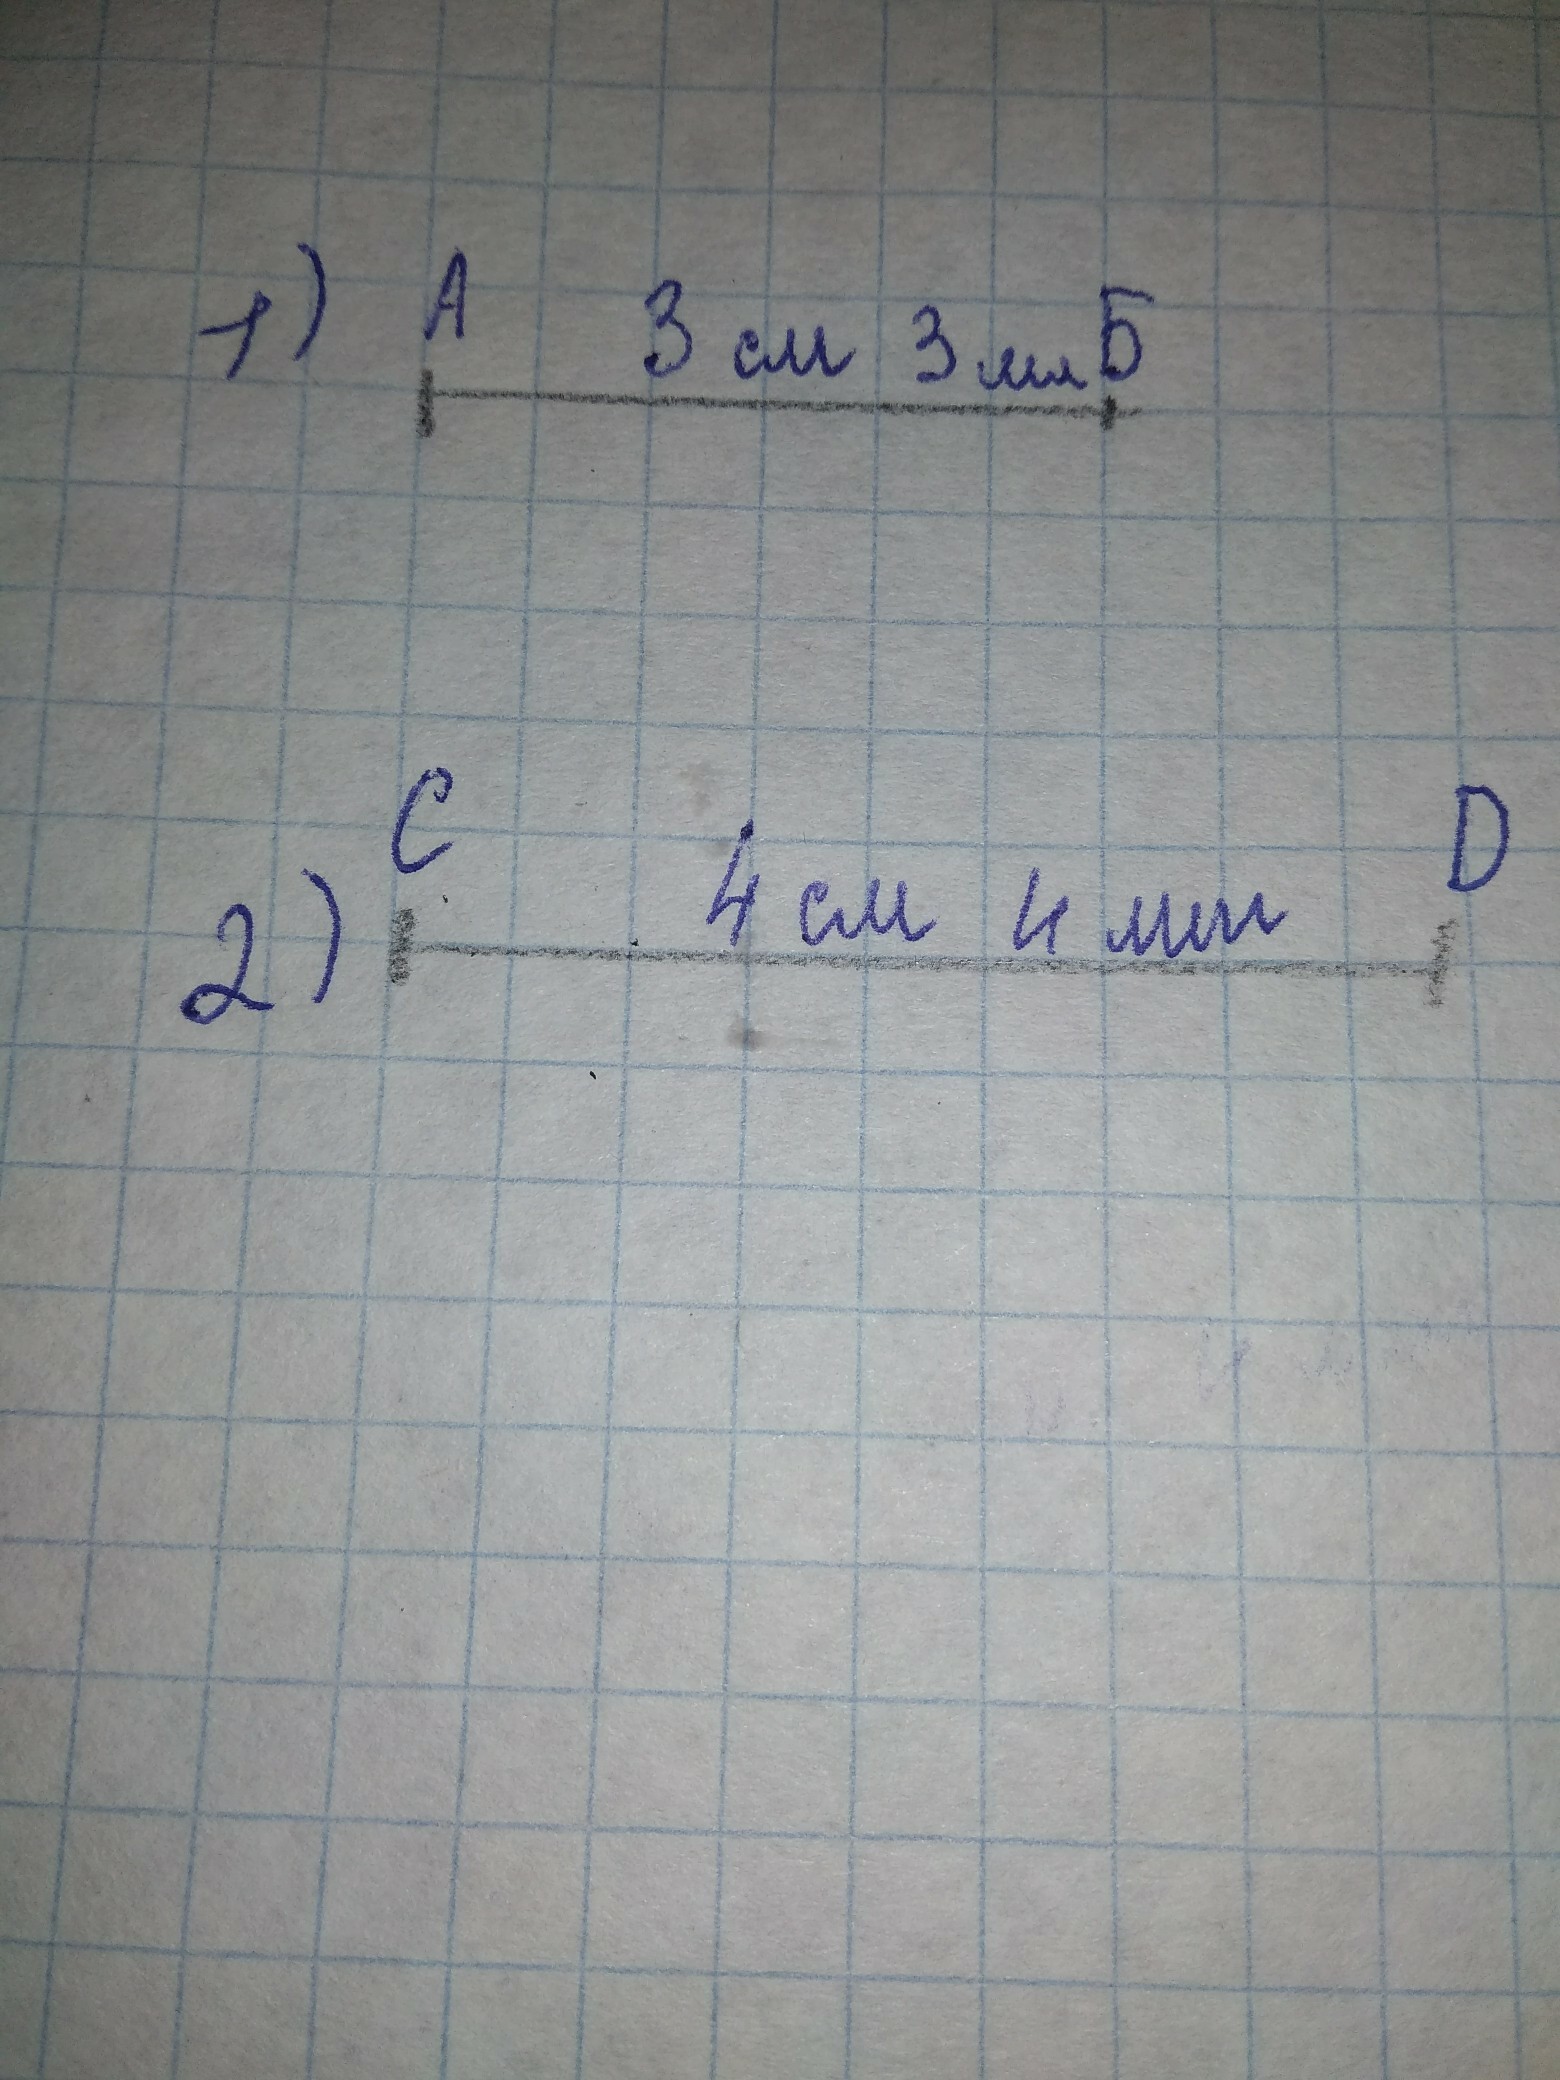 1) А 3 см 3 мм Б
2) С 4 см 4 мм D